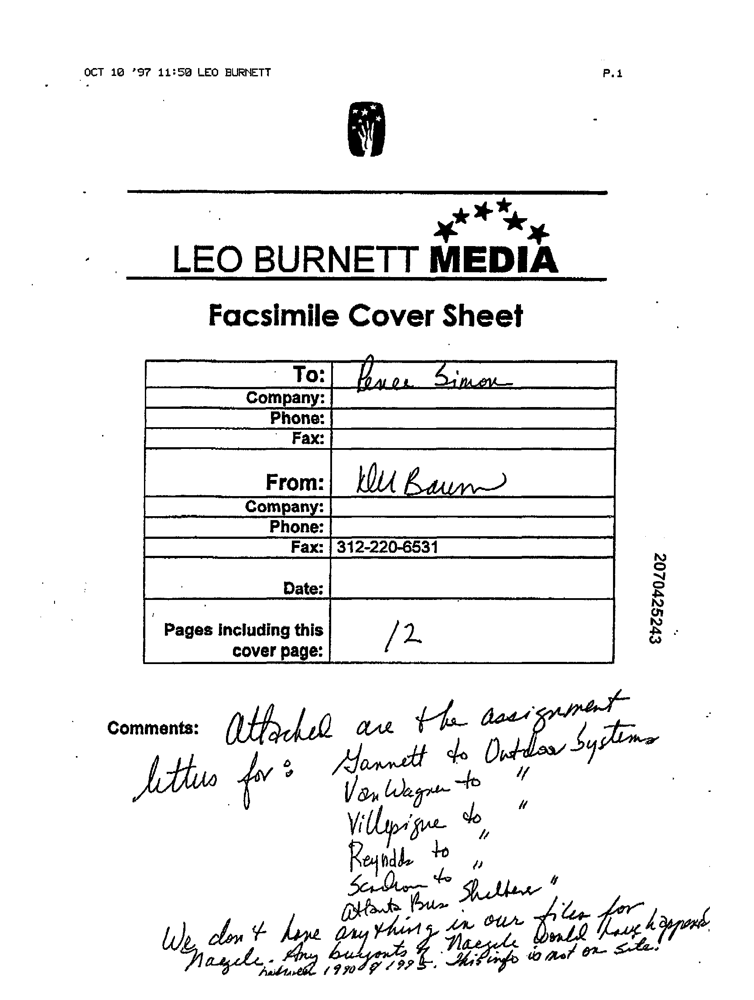 OCT 10 '97 11:50 LEO BURNETT P.1
LEO BURNETT MEDIA
Facsimile Cover Sheet
To: Renee Simon
Company:
Phone:
Fax:
From: Baum
Company:
Phone:
Fax: 312-220-6531
Date:
Pages including this
cover page: 12
2070425243
Comments: Attached are the assignment
letters for: Gannett to Outdoor Systems
Van Wagner to "
Villepigue to "
Reynolds to "
to "
Atlanta Bus Shelters "
We don't have anything in our files for
Naegele. Any buyouts of Naegele would have happened
between 1990 & 1995. This info is not on site.